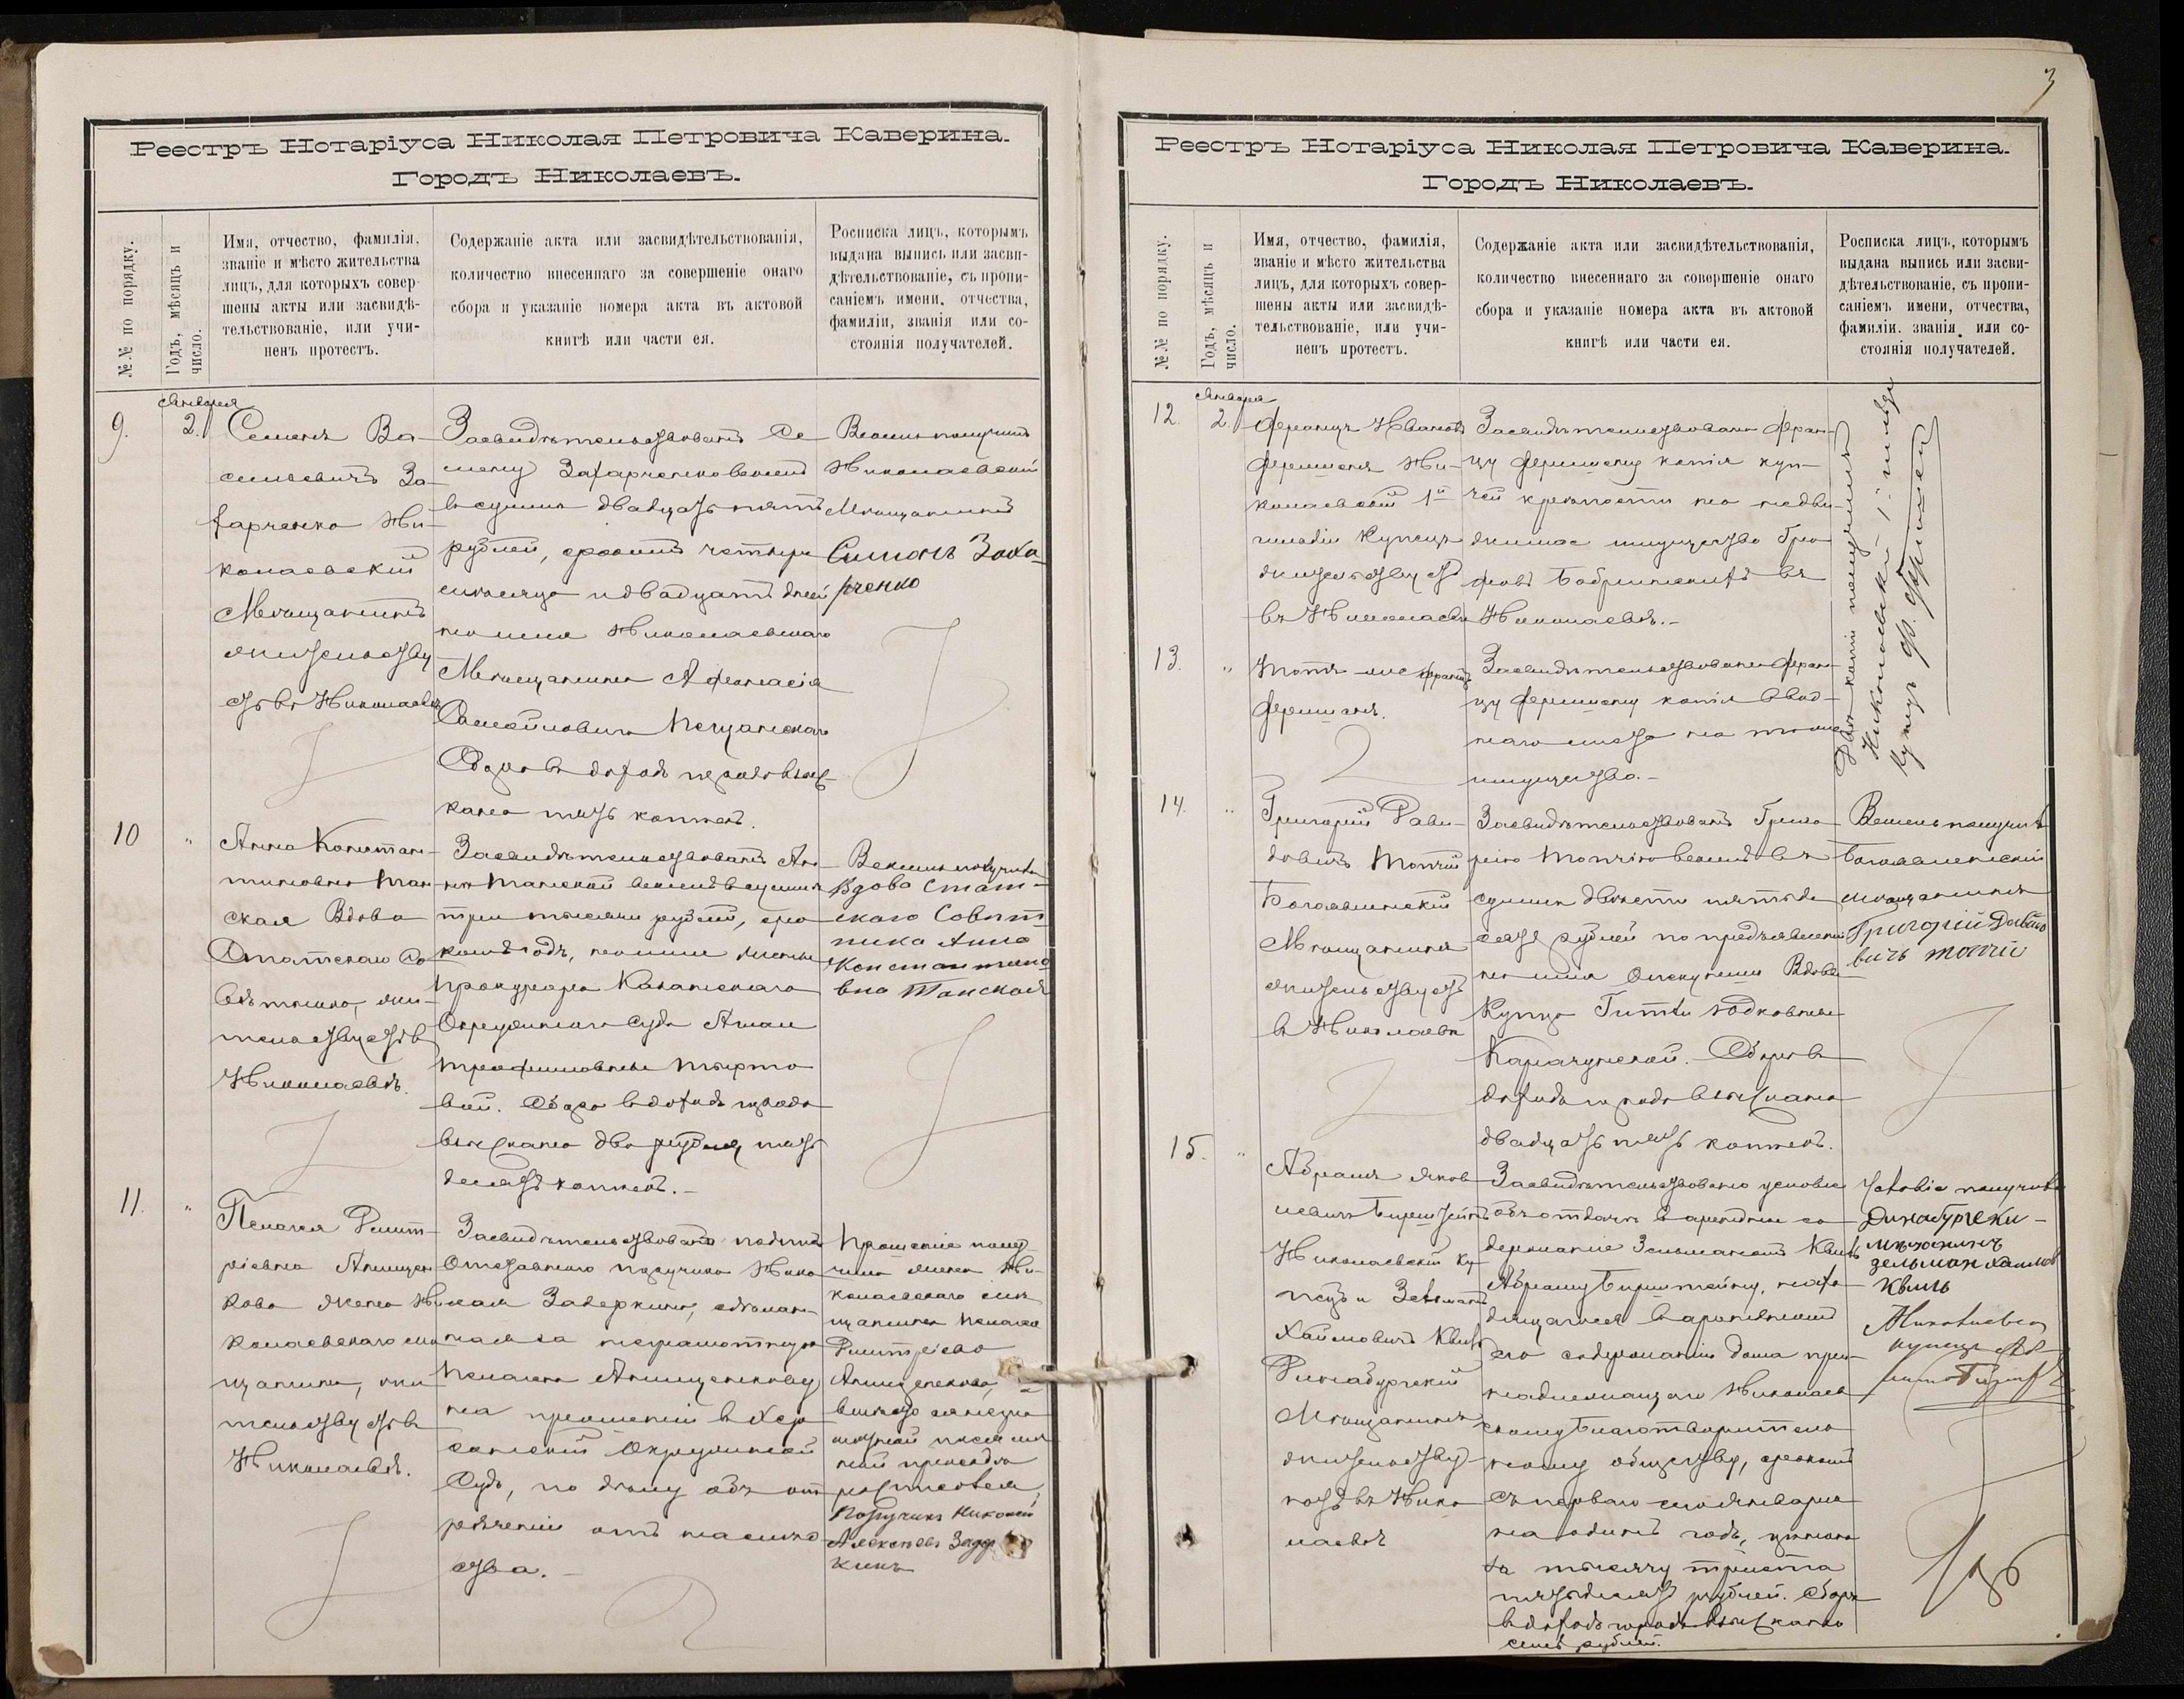 Реестръ Нотаріуса Николая Петровича Каверина.
Городъ Николаевъ.
№№ по порядку.
Годъ, мѣсяцъ и
число.
Имя, отчество, фамилія,
званіе и мѣсто жительства
лицъ, для которыхъ совер-
шены акты или засвидѣ-
тельствованіе, или учи-
ненъ протестъ.
Содержаніе акта или засвидѣтельствованія,
количество внесеннаго за совершеніе онаго
сбора и указаніе номера акта въ актовой
книгѣ или части ея.
Росписка лицъ, которымъ
выдана выпись или засви-
дѣтельствованіе, съ пропи-
саніемъ имени, отчества,
фамиліи, званія или со-
стоянія получателей.
9.
Января
2.
Семенъ Ва-
сильевичъ За-
харченко Ни-
колаевскій
Мѣщанинъ
жительству
етъ въ Николаевѣ
Засвидѣтельствованъ Се-
мену Захарченко вексель
въ суммѣ двадцать пять
рублей, срокомъ четыре
мѣсяца и двадцать дней
на имя Николаевскаго
Мѣщанина Афанасія
Самойловича Песчанскаго
Сбора въ доходъ города взыс-
кано пять копѣекъ.
Вексель получилъ
Николаевскій
Мѣщанинъ
Симонъ Заха-
рченко
10
"
Анна Константи-
тиновна Тан-
ская Вдова
Статскаго Со
вѣтника, жи-
тельствуетъ въ
Николаевѣ.
Засвидѣтельствованъ Ан-
нѣ Танской вексель въ суммѣ
три тысячи рублей, сро
комъ годъ, на имя жены
Прокурора Казанскаго
Окружнаго Суда Анны
Трофимовны
вой. Сбора въ доходъ города
взыскано два рубля пять
десятъ копѣекъ.-
Вексель получила
Вдова Стат-
скаго Совѣт
ника Анна
Константино
вна Танская
11.
"
Пелагея Дмит-
ріевна Анищен
кова жена Ни
колаевскаго мѣ
щанина, жи
тельствуетъ въ
Николаевѣ.
Засвидѣтельствована подпись
Отставнаго поручика Нико
лая Задеркина, сдѣлан-
ная за неграмотную
Пелагею Анищенкову
на прошеніи въ Хер
сонскій Окружный
Судъ, по дѣлу объ от
реченіи отъ наслѣд
ства.-
Прошеніе полу
чила жена Ни-
колаевскаго мѣ
щанина Пелагея
Дмитріева
Анищенкова,
Поручикъ Николай
Алексѣевъ Задер
кинъ
3
Реестръ Нотаріуса Николая Петровича Каверина.
Городъ Николаевъ.
№№ по порядку.
Годъ, мѣсяцъ и
число.
Имя, отчество, фамилія,
званіе и мѣсто жительства
лицъ, для которыхъ совер-
шены акты или засвидѣ-
тельствованіе, или учи-
ненъ протестъ.
Содержаніе акта или засвидѣтельствованія,
количество внесеннаго за совершеніе онаго
сбора и указаніе номера акта въ актовой
книгѣ или части ея.
Росписка лицъ, которымъ
выдана выпись или засви-
дѣтельствованіе, съ пропи-
саніемъ имени, отчества,
фамиліи. званія или со-
стоянія получателей.
12.
Января
2.
Францъ Ивановъ
Фришенъ Ни-
колаевскій 1й
гильдіи Купецъ
жительствуетъ
въ Николаевѣ
Засвидѣтельствована Фран-
цу Фришену копія куп-
чей крѣпости на недви-
жимое имущество
въ
Николаевѣ.-
Двѣ копіи получилъ
Николаевскій 1й гильдіи
Купецъ Ф. Фришенъ
13.
"
Тотъ же Францъ
Фришенъ.
Засвидѣтельствована Фран-
цу Фришену копія Ввод-
наго листа на тоже
имущество.-
14.
"
Григорій Дави-
довичъ Топчій
Богоявленскій
Мѣщанинъ
жительствуетъ
въ Николаевѣ
Засвидѣтельствованъ Григо
рію Топчію вексель въ
суммѣ двѣсти пятьде
сятъ рублей по предъявленіи
на имя опекунши Вдовы
Купца Гитли Юдковны
Карачунской. Сбора въ
доходъ города взыскано
двадцать пять копѣекъ.
Вексель получилъ
Богоявленскій
мѣщанинъ
Григорій Давидо
вичъ Топчій
15.
"
Абрамъ Яков
левичъ Бирштейнъ
Николаевскій ку
пецъ и Зельманъ
Хаимовичъ Квитъ
Динабургскій
Мѣщанинъ
жительству-
ютъ въ Нико
лаевѣ
Засвидѣтельствовано условіе
объ отдачѣ въ арендное со
держаніе Зельманомъ Квитъ
Абраму Бирштейну, нахо
дящагося въ арендномъ
его содержаніи дома при-
надлежащаго Николаев
скому благотворитель
ному обществу, срокомъ
съ перваго сего января
на одинъ годъ, цѣною
за тысячу триста
пятьдесятъ рублей. Сбора
въ доходъ города взыскано
семь рублей.
Условіе получилъ
Динабургски-
мѣщанинъ
зельман хаимов
Квитъ
Николаевскій
купецъ Аб-